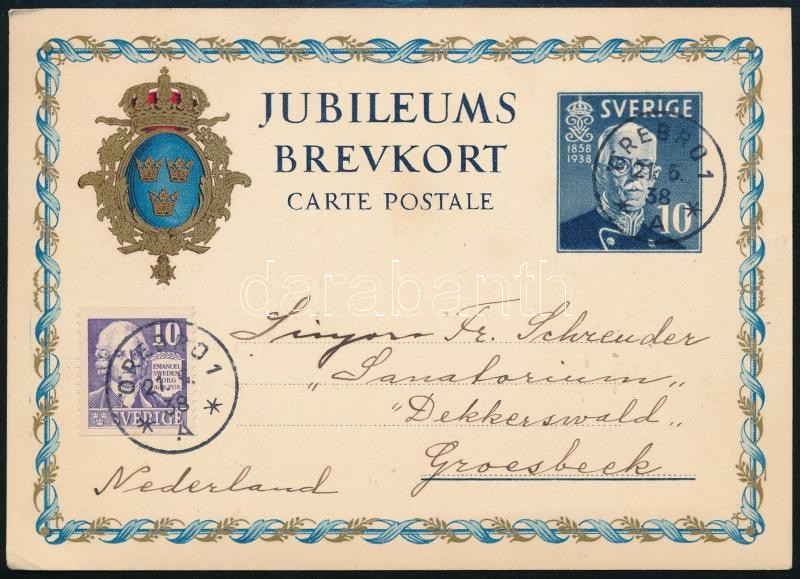 JUBILEUMS
BREVKORT
CARTE POSTALE
SVERIGE
1858
1938
10
ÖREBRO 1
21. 5.
38
* A *
10
EMANUEL
SWEDEN
BORG
1688-1938
SVERIGE
ÖREBRO 1
38
* A *
darabanth
Fr. Schreuder
„Sanatorium"
"Dekkerswald„
Groesbeek
Nederland